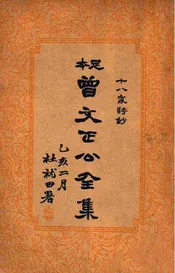 足本
曾文正公全集
十八家詩鈔
乙亥二月
杜就田署